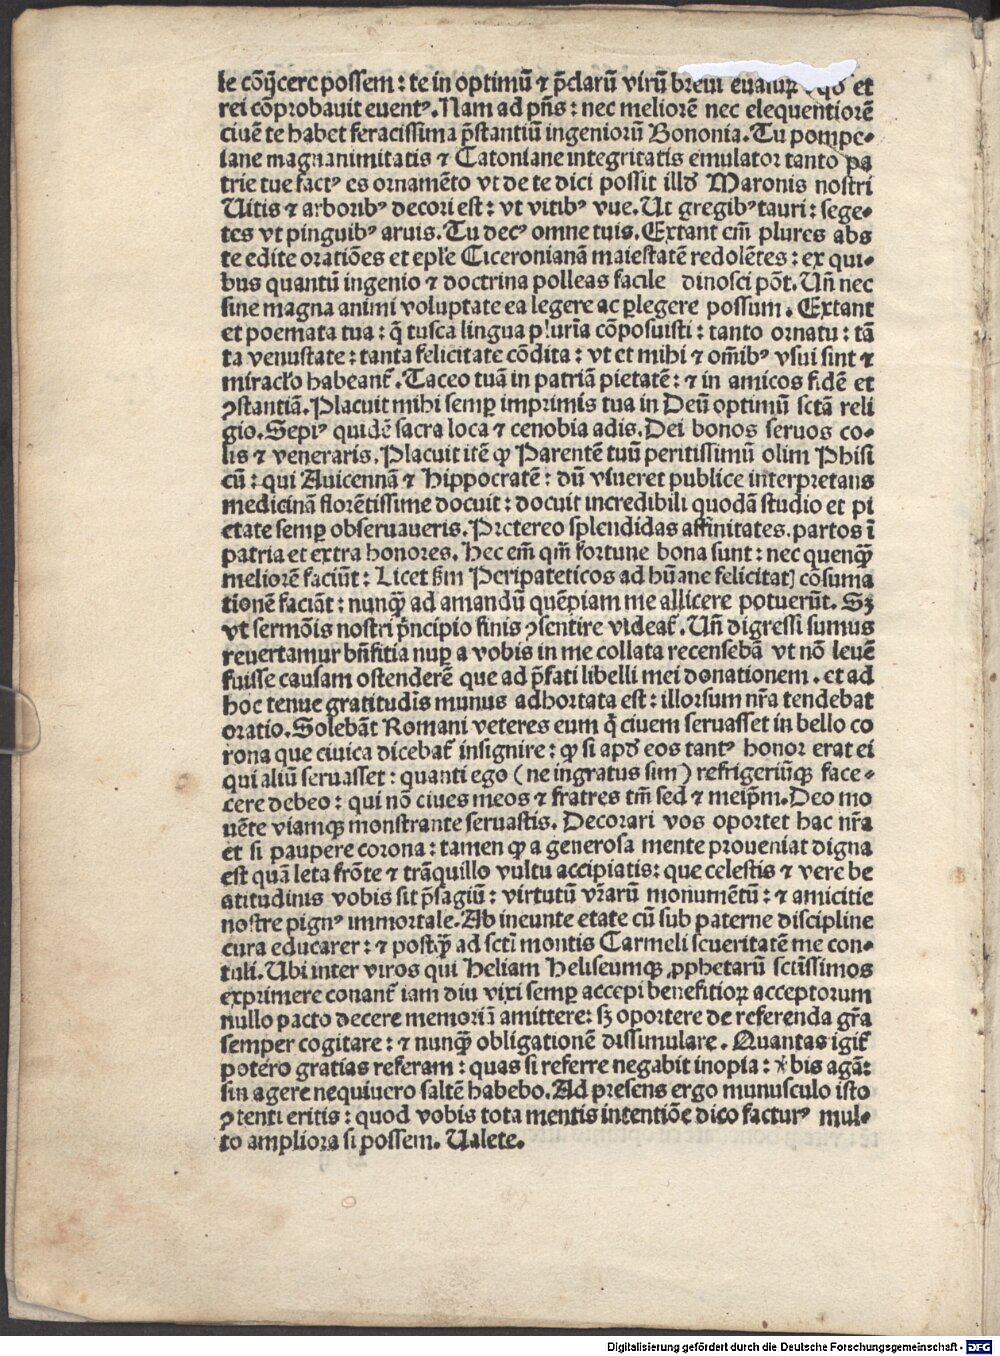 le cōijcere possem: te in optimū ⁊ p̄clarū virū brevi et
rei cōprobauit euentꝰ. Nam ad pn̄s: nec meliorē nec elequentiorē
ciuē te habet feracissima p̄stantiū ingeniorū Bononia. Tu pompe⸗
iane magnanimitatis ⁊ Catoniane integritatis emulator tanto pa
trie tue factꝰ es ornamēto vt de te dici possit illd̕ Maronis nostri
Uitis ⁊ arboribꝰ decori est: vt vitibꝰ vue. Ut gregibꝰ tauri: sege⸗
tes vt pinguibꝰ aruis. Tu decꝰ omne tuis. Extant em̄ plures abs
te edite oratiōes et epl̄e Ciceronianā maiestatē redolētes: ex qui⸗
bus quantū ingenio ⁊ doctrina polleas facile dinosci pōt. Un̄ nec
sine magna animi voluptate ea legere ac ꝑlegere possum. Extant
et poemata tua: q̄ tusca lingua plurīa cōposuisti: tanto ornatu: tā
ta venustate: tanta felicitate cōdita: vt et mihi ⁊ om̄ibꝰ vsui sint ⁊
miracl̕o habeant᷑. Taceo tuā in patriā pietatē: ⁊ in amicos fidē et
ꝯstantiā. Placuit mihi semꝑ imprimis tua in Deū optimū sctā reli
gio. Sepiꝰ quidē sacra loca ⁊ cenobia adis. Dei bonos seruos co⸗
lis ⁊ veneraris. Placuit itē ꝙ Parentē tuū peritissimū olim Phisi
cū: qui Auicennā ⁊ Hippocratē: dū viueret publice interpretans
medicinā florētissime docuit: docuit incredibili quodā studio et pi
etate semꝑ obseruaueris. Pretereo splendidas affinitates. partos ī
patria et extra honores. Hec em̄ qm̄ fortune bona sunt: nec quenꝙ̄
meliorē faciūt: Licet ẜm Peripateticos ad hūane felicitatꝭ cōsuma
tionē faciāt: nunꝙ̄ ad amandū quēpiam me allicere potuerūt. Sꝫ
vt sermōis nostri p̄ncipio finis ꝯsentire videat᷑. Un̄ digressi sumus
reuertamur bn̄fitia nuꝑ a vobis in me collata recensebā vt nō leuē
fuisse causam ostenderē que ad p̄fati libelli mei donationem. et ad
hoc tenue gratitudīs munus adhortata est: illorsum nr̄a tendebat
oratio. Solebāt Romani veteres eum q̄ ciuem seruasset in bello co
rona que ciuica dicebat᷑ insignire: ꝙ si apd̕ eos tantꝰ honor erat ei
qui aliū seruasset: quanti ego (ne ingratus sim) refrigeriūqꝫ face⸗
cere debeo: qui nō ciues meos ⁊ fratres tm̄ sed ⁊ meip̄m. Deo mo
uēte viamqꝫ monstrante seruastis. Decorari vos oportet hac nr̄a
et si paupere corona: tamen ꝙ a generosa mente proueniat digna
est quā leta frōte ⁊ trāquillo vultu accipiatis: que celestis ⁊ vere be
atitudinis vobis sit p̄sagiū: virtutū vr̄arū monumētū: ⁊ amicitie
nostre pignꝰ immortale. Ab ineunte etate cū sub paterne discipline
cura educarer: ⁊ postꝙ̄ ad scti montis Carmeli seueritatē me con⸗
tuli. Ubi inter viros qui Heliam Heliseumqꝫ ꝓphetarū sctissimos
exprimere conant᷑ iam diu vixi semꝑ accepi benefitioꝝ acceptorum
nullo pacto decere memoriā amittere: sꝫ oportere de referenda gr̄a
semper cogitare: ⁊ nunꝙ̄ obligationē dissimulare. Quantas igit᷑
potero gratias referam: quas si referre negabit inopia: vobis agā:
sin agere nequiuero saltē habebo. Ad presens ergo munusculo isto
ꝯtenti eritis: quod vobis tota mentis intentiōe dico facturꝰ mul⸗
to ampliora si possem. Ualete.
Digitalisierung gefördert durch die Deutsche Forschungsgemeinschaft - DFG